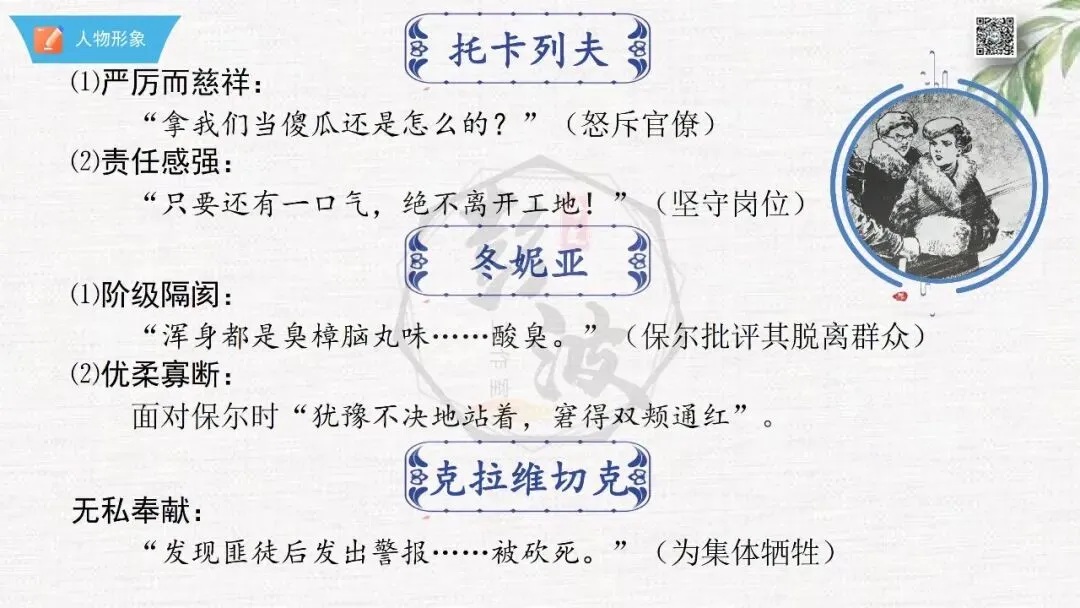 人物形象
托卡列夫
⑴严厉而慈祥：
“拿我们当傻瓜还是怎么的？”（怒斥官僚）
⑵责任感强：
“只要还有一口气，绝不离开工地！”（坚守岗位）
冬妮亚
⑴阶级隔阂：
“浑身都是臭樟脑丸味……酸臭。”（保尔批评其脱离群众）
⑵优柔寡断：
面对保尔时“犹豫不决地站着，窘得双颊通红”。
克拉维切克
无私奉献：
“发现匪徒后发出警报……被砍死。”（为集体牺牲）